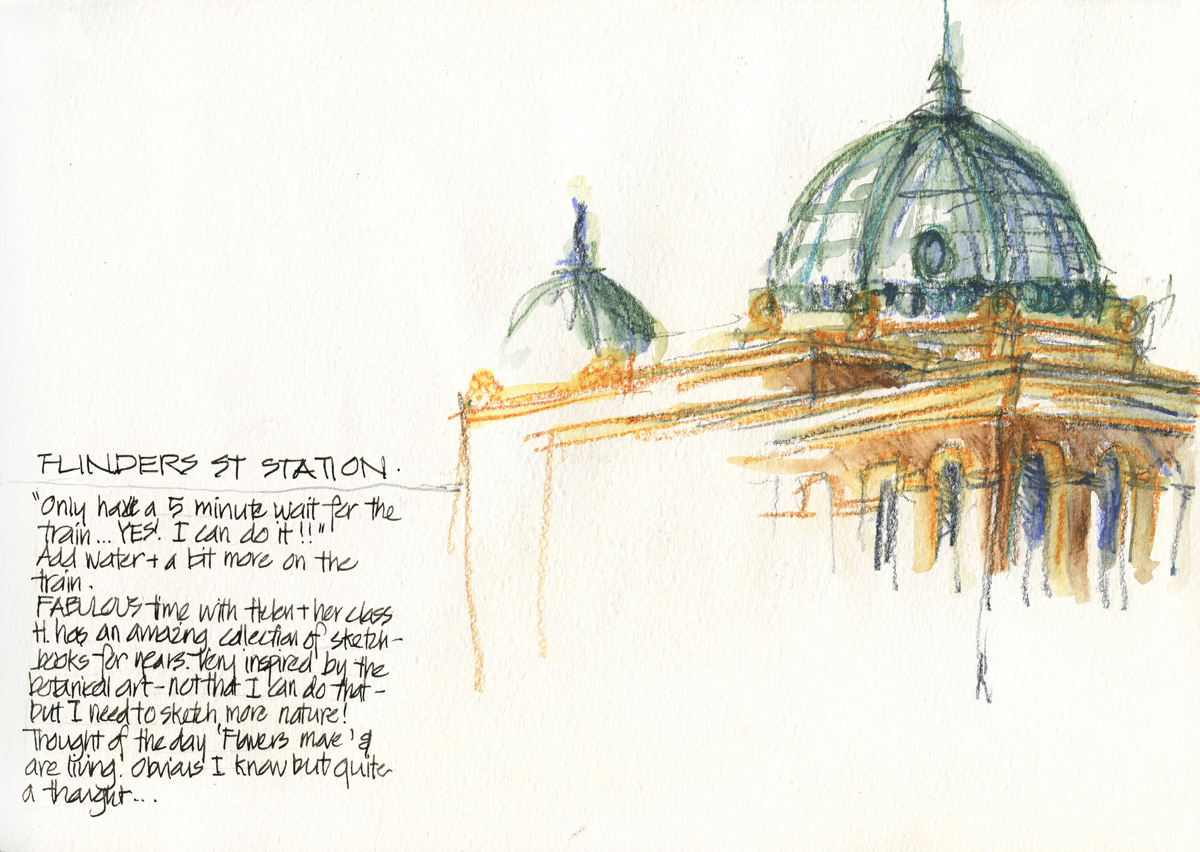 FLINDERS ST STATION.
"Only have a 5 minute wait for the
train... YES! I can do it!!"
Add water + a bit more on the
train.
FABULOUS time with Helen + her class
H. has an amazing collection of sketch-
books for years. Very inspired by the
botanical art - not that I can do that -
but I need to sketch more nature!
Thought of the day 'Flowers move' &
are living! Obvious I know but quite
a thought...